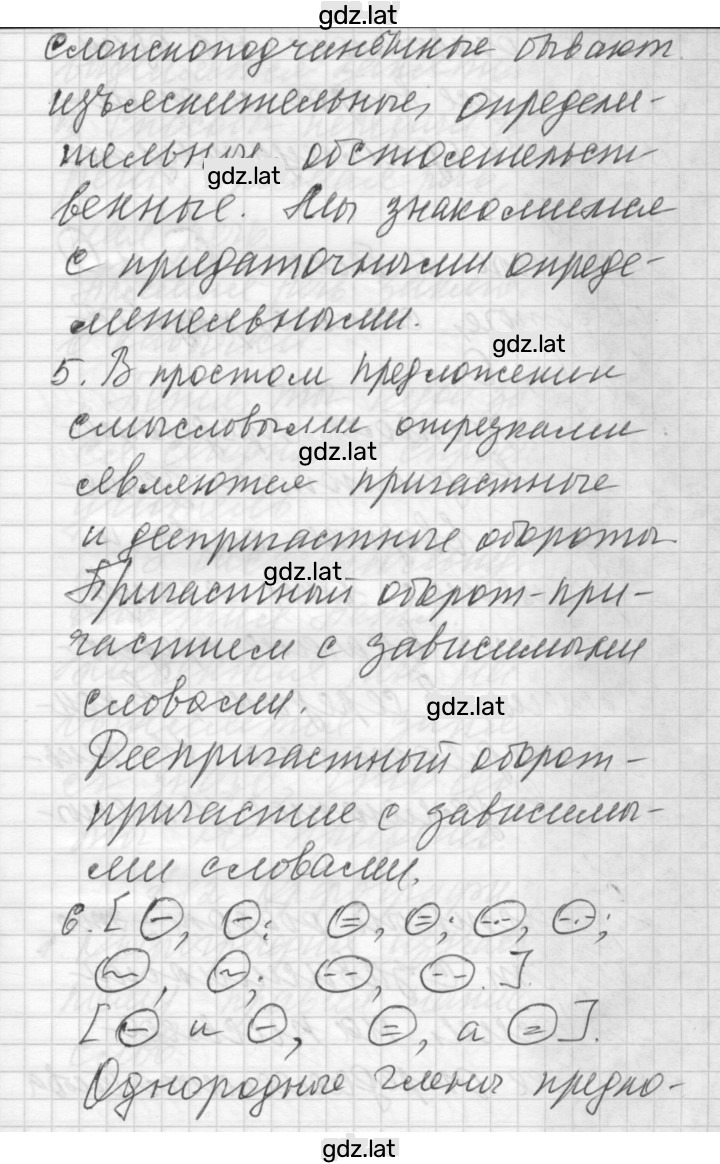 gdz.lat
Сложноподчинённые бывают
изъяснительные, определи-
тельные обстоятельст-
gdz.lat
венные. Мы знакомимся
с придаточными опреде-
лительными.
gdz.lat
5. В простом предложении
смысловыми отрезками
gdz.lat
являются причастные
и деепричастные обороты.
gdz.lat
Причастный оборот-при-
частием с зависимыми
словами.
gdz.lat
Деепричастный оборот-
причастие с зависимы-
ми словами.
6. [ –, –; =, =; -·-, -·-;
~, ~; --, --. ].
[ – и –, =, а = ].
Однородные члены предло-
gdz.lat